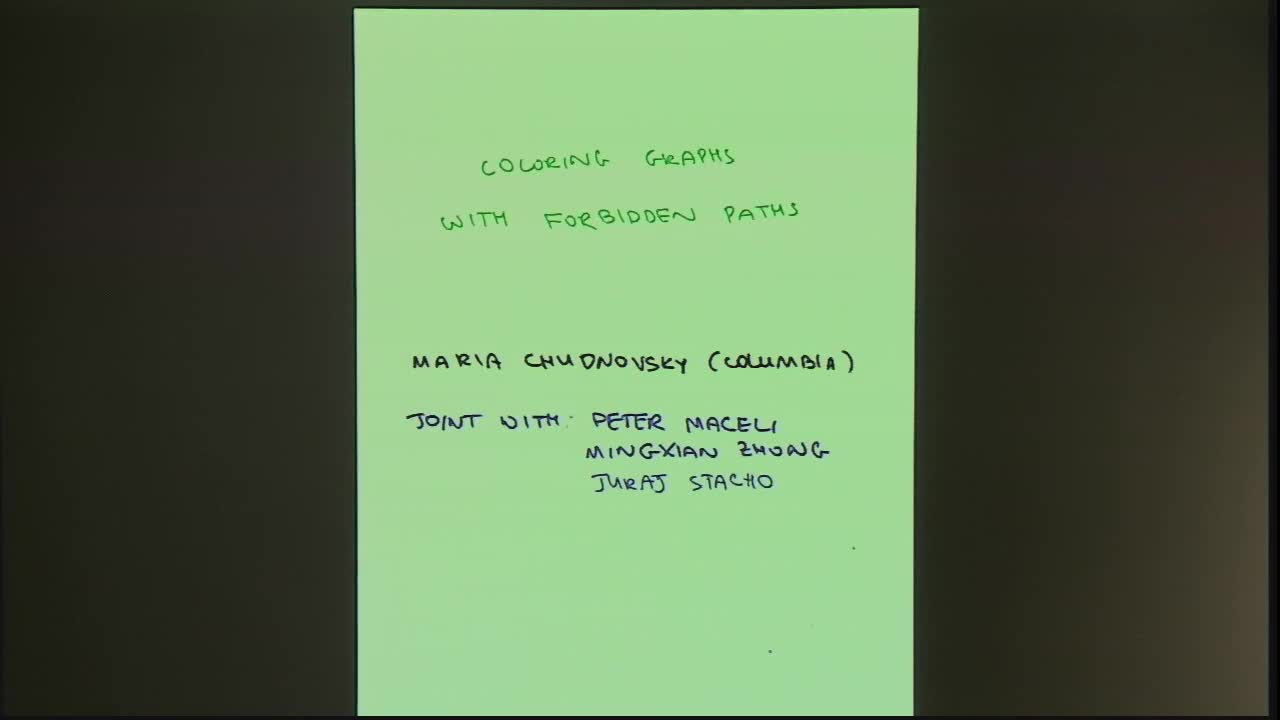 COLORING GRAPHS
WITH FORBIDDEN PATHS
MARIA CHUDNOVSKY (COLUMBIA)
JOINT WITH: PETER MACELI
MINGXIAN ZHONG
JURAJ STACHO